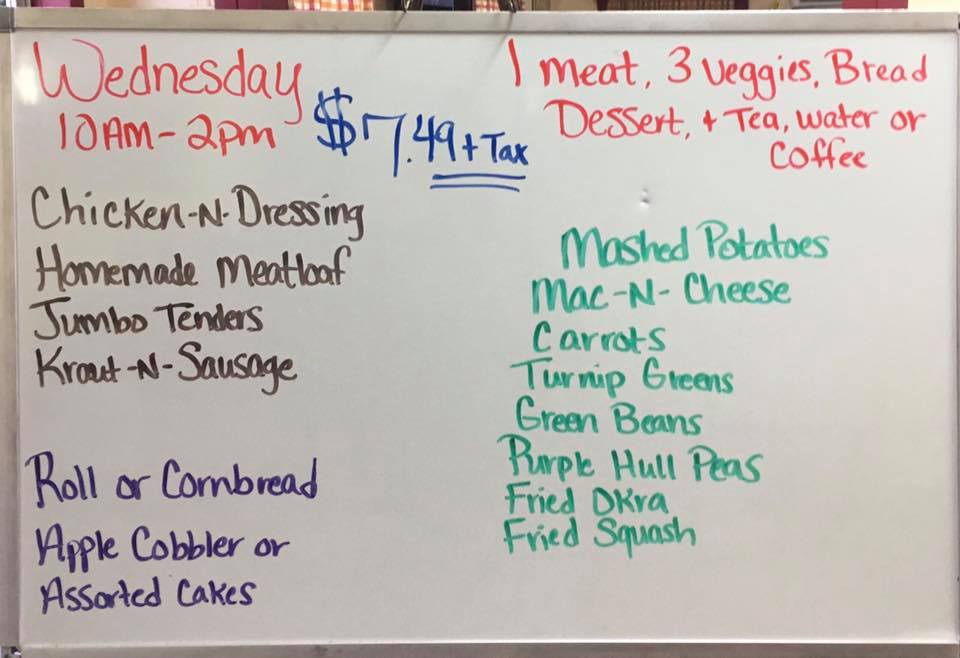 Wednesday
10AM-2pm
$7.49 + Tax
1 meat, 3 veggies, Bread
Dessert, + Tea, water or
Coffee
Chicken-N-Dressing
Homemade Meatloaf
Jumbo Tenders
Kraut-N-Sausage
Roll or Cornbread
Apple Cobbler or
Assorted Cakes
Mashed Potatoes
Mac-N-Cheese
Carrots
Turnip Greens
Green Beans
Purple Hull Peas
Fried Okra
Fried Squash